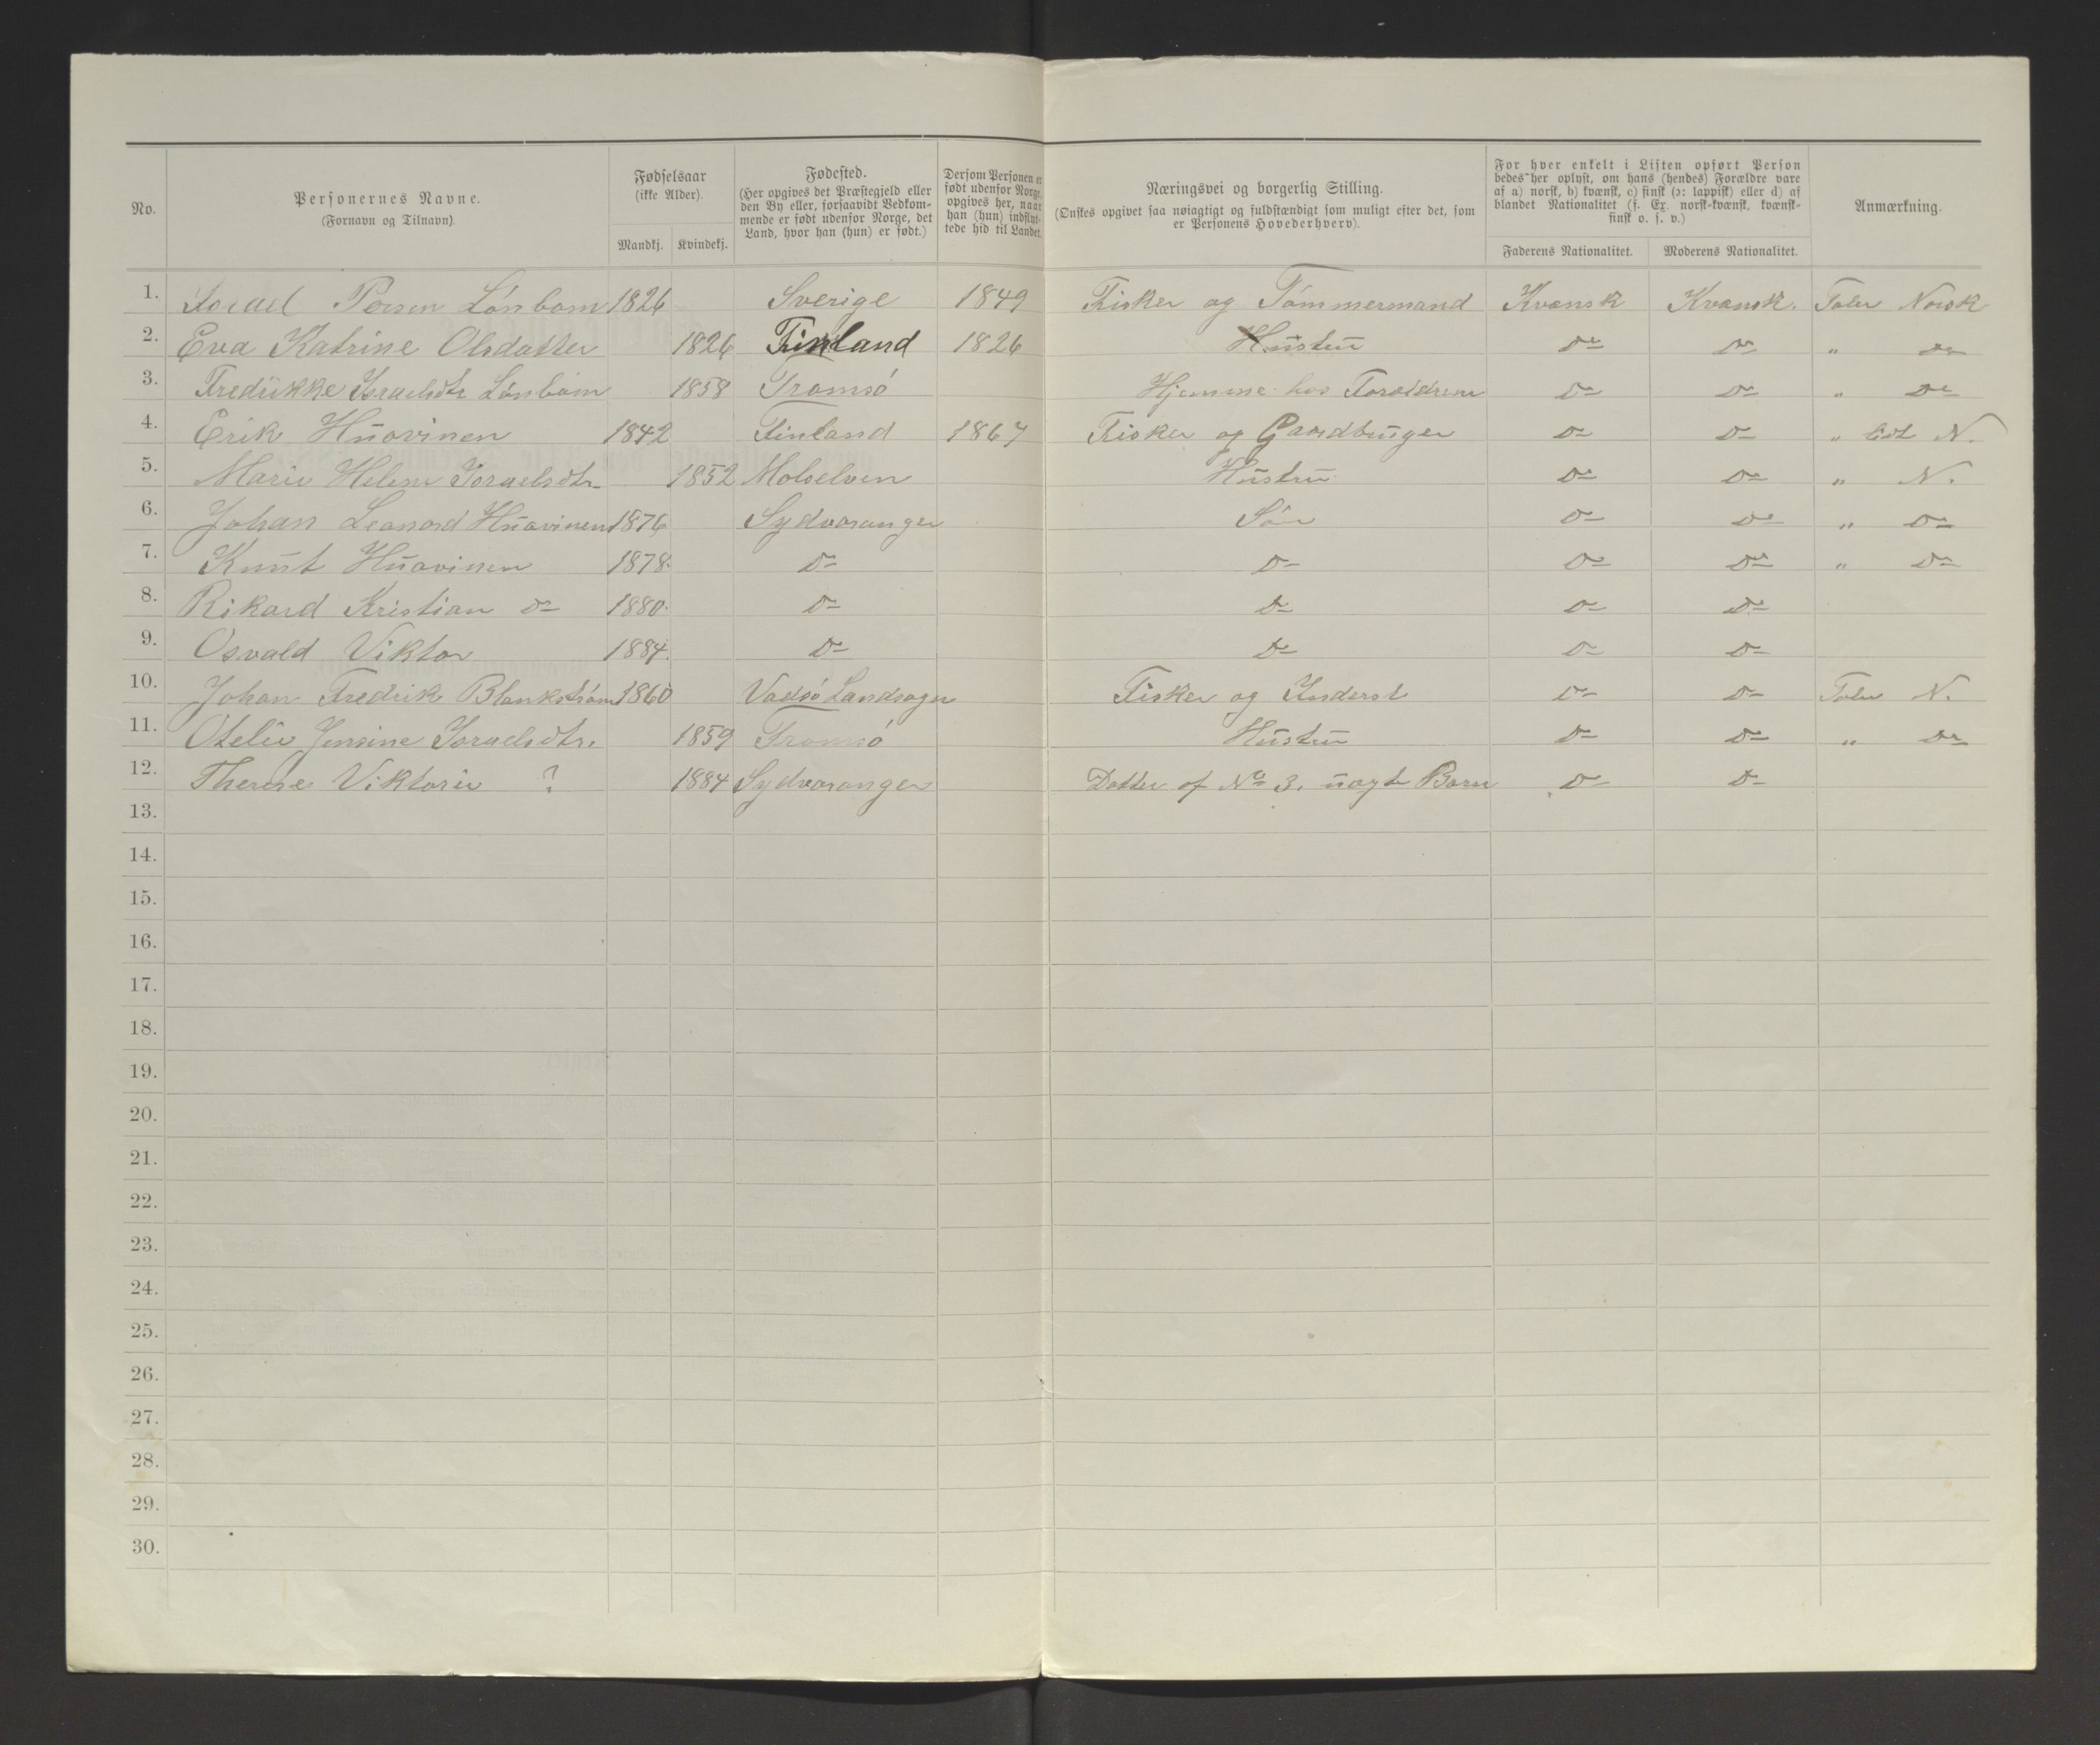 No.
Personernes Navne.
(Fornavn og Tilnavn).
Fødselsaar
(ikke Alder).
Mandkj. Kvindekj.
Fødested.
(Her opgives det Præstegjeld eller
den By eller, forsaavidt Vedkom-
mende er født udenfor Norge, det
Land, hvor han (hun) er født.)
Dersom Personen er
født udenfor Norge,
opgives her, naar
han (hun) indflyt-
tede hid til Landet.
Næringsvei og borgerlig Stilling.
(Ønskes opgivet saa nøiagtigt og fuldstændigt som muligt efter det, som
er Personens Hovederhverv).
For hver enkelt i Listen opført Person
bedes her oplyst, om hans (hendes) Forældre vare
af a) norsk, b) kvænsk, c) finsk (ɔ: lappisk) eller d) af
blandet Nationalitet (f. Ex. norsk-kvænsk, kvænsk-
finsk o. s. v.)
Faderens Nationalitet. Moderens Nationalitet.
Anmærkning.
1. Israel Persen Lönbom 1826 Sverige 1849 Fisker og Tömmermand Kvænsk Kvænsk. Taler Norsk
2. Eva Katrine Olsdatter 1826 Finland 1826 Hustru Do Do " Do
3. Fredrikke Israelsdtr Lönbom 1858 Tromsö Hjemme hos Forældrene Do Do " Do
4. Erik Huovinen 1842 Finland 1867 Fisker og Gaardbruger Do Do " lidt N.
5. Marie Helene Israelsdtr 1852 Molselven Hustru Do Do " N.
6. Johan Leonard Huovinen 1876 Sydvaranger Sön Do Do " Do
7. Knut Huovinen 1878. Do Do Do Do " Do
8. Rikard Kristian Do 1880. Do Do Do Do
9. Osvald Viktor 1884. Do Do Do Do
10. Johan Fredrik Blankström 1860 Vadsö Landsogn Fisker og Inderst Do Do Taler N.
11. Otelie Jensine Israelsdtr. 1859 Tromsö Hustru Do Do " Do
12. Therese Viktorie ? 1884 Sydvaranger Datter af No 3. uægte Barn Do Do
13.
14.
15.
16.
17.
18.
19.
20.
21.
22.
23.
24.
25.
26.
27.
28.
29.
30.